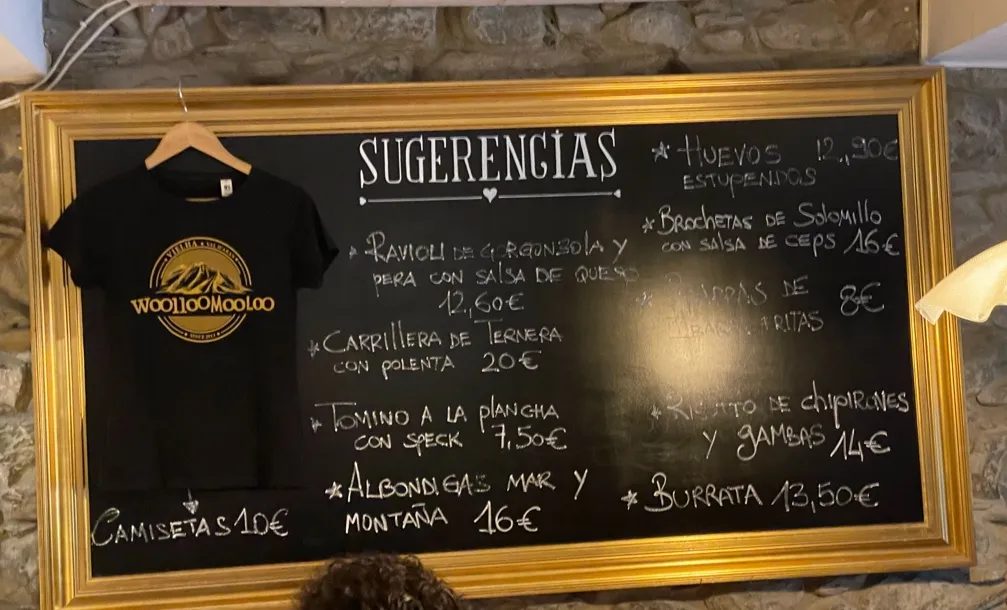 SUGERENCIAS
* RAVIOLI DE GORGONZOLA Y
PERA CON SALSA DE QUESO
12,60€
* CARRILLERA DE TERNERA
CON POLENTA 20€
* TOMINO A LA PLANCHA
CON SPECK 7,50€
* ALBONDIGAS MAR Y
MONTAÑA 16€
* HUEVOS 12,90€
ESTUPENDOS
* BROCHETAS DE SOLOMILLO
CON SALSA DE CEPS 16€
DE 8€
FRITAS
* RISOTTO DE CHIPIRONES
Y GAMBAS 14€
* BURRATA 13,50€
VIELHA
WOOLLOOMOOLOO
CAMISETAS 10€